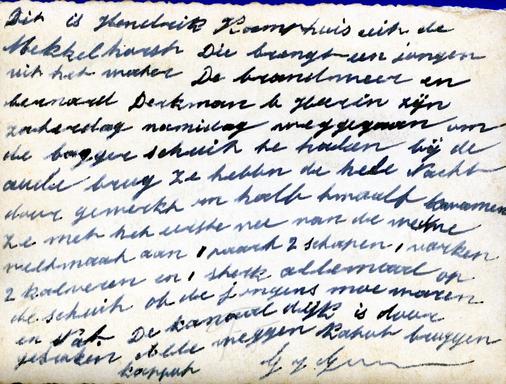 Dit is Hendrik Kamphuis uit de
Mekkelhorst Die brengt een jongen
uit het water De brandmeer en
bernard Derkman b Heerin zijn
zaterdag namidag weggegaan om
de bagger schuit te haelen bij de
aude brug Ze hebbn de hele Nacht
door gewerkt om half twaalf kwamen
Ze met het eerste vee van de
aan 1 paard 2 schapen 1 varken
2 kalveren en 1 sterk allemaal op
de schuit ob de jongens moe waren
en nat. De kanaal dijk is door
gebroken Alle weggen kapot bruggen
kappot